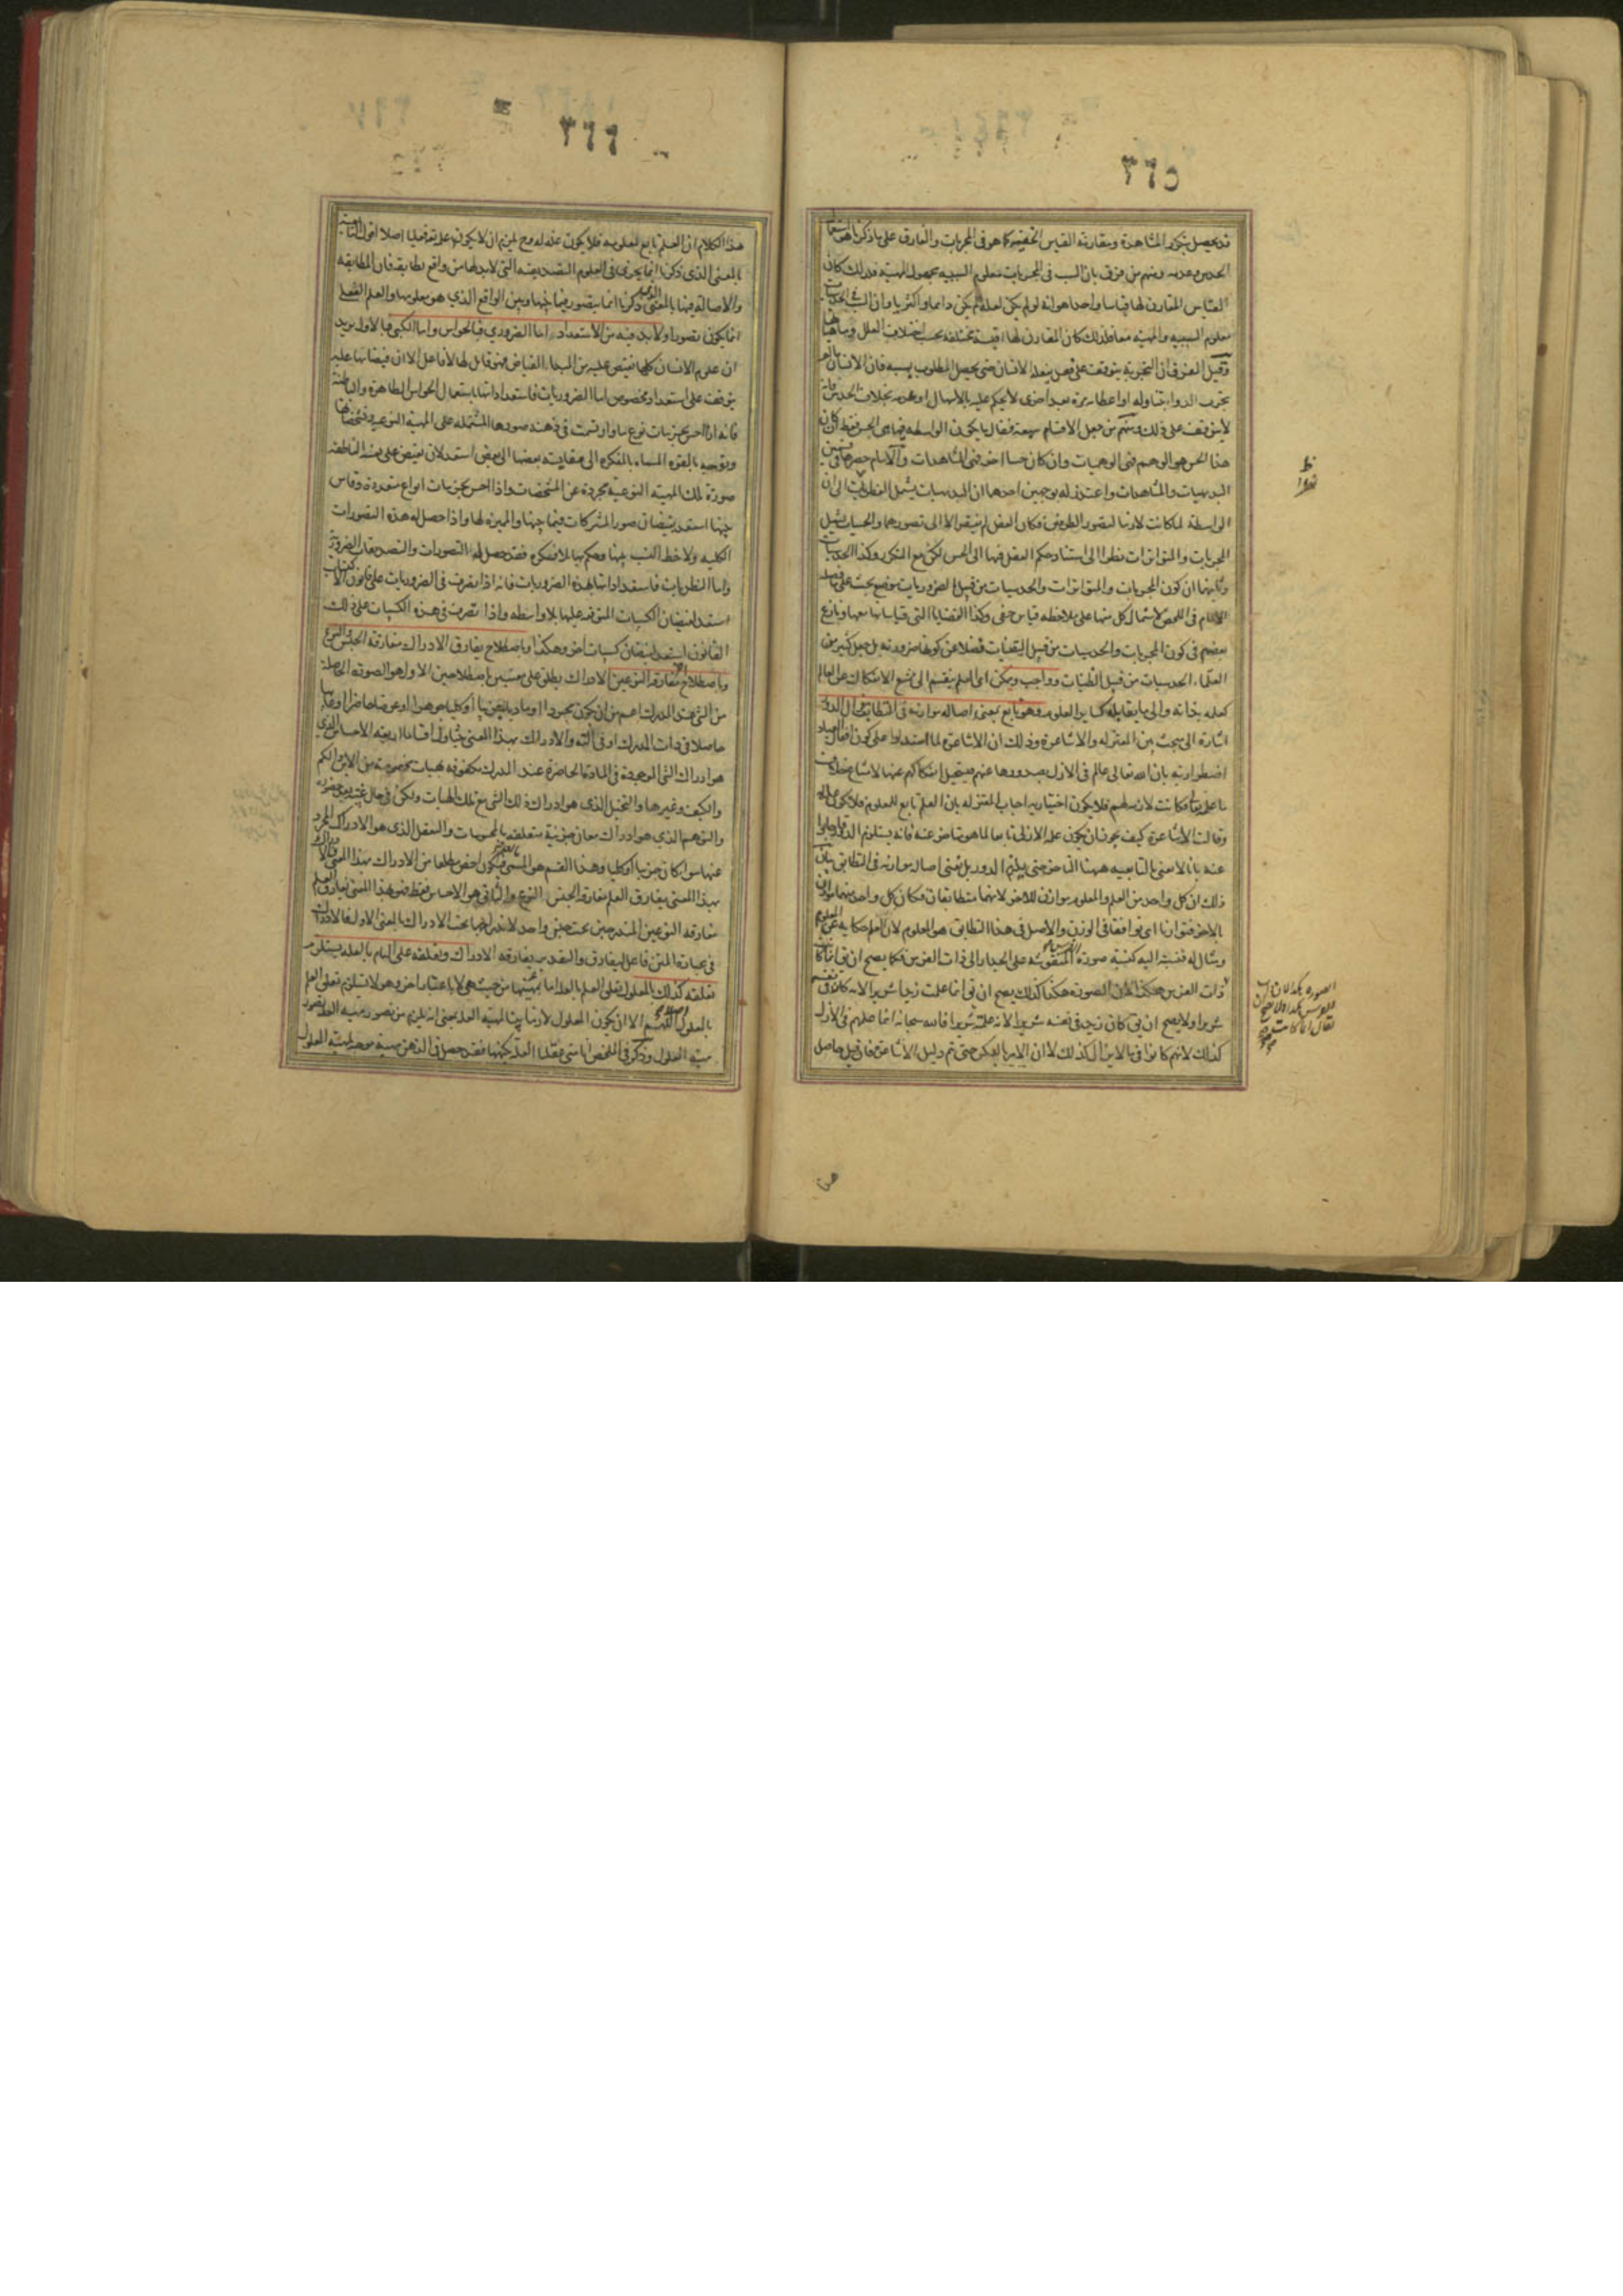 ٣٦٥
قد يحصل بتكرر المشاهدة ومقارنة القياس الخفى كما هو فى المجربات والفارق على ما ذكرنا هو استعمال
الحدس وعدمه ومنهم من فرق بان السبب فى المجربات معلوم السببية مجهول المهية فلذلك كان
القياس المقارن لها قياسا واحدا هو انه لو لم يكن لعلة لم يكن دائما او اكثريا وان السبب فى الحدسيات
معلوم السببية والمهية معا فلذلك كان المقارن لها اقيسة مختلفة بحسب اختلاف العلل فى ماهياتها
وقيل الفرق ان التجربة يتوقف على فعل يفعله الانسان حتى يحصل المطلوب بسببه فان الانسان ما لم
يجرب الدوا بتناوله او اعطائه غيره مرة بعد اخرى لا يحكم عليه بالاسهال او عدمه بخلاف الحدس فانه
لا يتوقف على ذلك ومنهم من جعل الاقسام سبعة فقال ما يكون الواسطة فيها هى الحس فقط ان كان
هذا الحس هو الوهم فهى الوهميات وان كان حسا اخر فهى المشاهدات والامام حصرها فى قسمين
البديهيات والمشاهدات واعتذر له بوجهين احدهما ان البديهيات يشمل الفطريات لان
الواسطة لما كانت لازمة لتصور الطرفين فكان العقل لم يفتقر الا الى تصورهما والحسيات يشمل
المجربات والمتواترات نظرا الى استناد حكم العقل فيها الى الحس لكن مع التكرر وكذا الحدسيات
وثانيهما ان كون المجربات والمتواترات والحدسيات من قبيل الضروريات موضع بحث على ما فصله
الامام فى الملخص لاشتمال كل منها على ملاحظة قياس خفى وكذا القضايا التى قياساتها معها ونازع
بعضهم فى كون المجربات والحدسيات من قبيل اليقينيات فضلا عن كونها ضرورية بل جعل كثير من
العلماء الحدسيات من قبيل الظنيات وواجب وممكن اى العلم ينقسم الى ممتنع الانفكاك عن العالم
كعلمه بذاته والى ما يقابله كساير العلوم وهو تابع بمعنى اصالة موازنه فى التطابق فزال الدور
اشارة الى بحث بين المعتزلة والاشاعرة وذلك ان الاشاعرة لما استدلوا على كون افعال العباد
اضطرارية بان الله تعالى عالم فى الازل بصدورها عنهم فيستحيل انفكاكهم عنها لامتناع خلاف
ما علمه تعالى فكانت لازمة لهم فلا يكون اختيارية اجاب المعتزلة بان العلم تابع للمعلوم فلا يكون علة له
وقالت الاشاعرة كيف يجوز ان يكون علمه الازلى تابعا لما هو متاخر عنه فانه يستلزم الدور واجابوا
عنه بانا لا نعنى بالتابعية ههنا التاخر حتى يلزم الدور بل نعنى اصالة موازنه فى التطابق بيان
ذلك ان كل واحد من العلم والمعلوم موازن للاخر لانهما متطابقان فكان كل واحد منهما وازن
بالاخر فتوازنا اى توافقا فى الوزن والاصل فى هذا التطابق هو المعلوم لان العلم حكاية عن المعلوم
ومثال له فنسبته اليه كنسبة صورة الفرس المنقوشة على الجدار الى ذات الفرس فكما يصح ان يقال انما كان
ذات الفرس هكذا لان الصورة هكذا كذلك يصح ان يقال انما علمت زيدا شريرا لانه كان فى نفسه
شريرا ولا يصح ان يقال كان زيد فى نفسه شريرا لانى علمته شريرا فالله سبحانه انما علمهم فى الازل
كذلك لانهم كانوا فيما لا يزال كذلك لا ان الامر بالعكس حتى يتم دليل الاشاعرة فان قيل حاصل
الصورة هكذا لان
٣٦٦
هذا الكلام ان العلم تابع لمعلومه فلا يكون علة له ومع يلزم ان لا يكون علمه تعالى فعليا اصلا اقول التابعية
بالمعنى الذى ذكرنا انما يجرى فى العلوم التصديقية التى لابد لها من واقع يطابقه فان المطابقة
والاصالة فيها بالمعنى الذى ذكرنا انما يتصور فيما بينها وبين الواقع الذى هو معلومها والعلم الفعلى
انما يكون تصورا ولا بد فيه من الاستعداد اما الضرورى فبالحواس واما الكسبى فبالاول يريد
ان علوم الانسان كلها تفيض عليه من المبداء الفياض فهو قابل لها لا فاعل الا ان فيضانها عليه
يتوقف على استعداد مخصوص اما الضروريات فاستعداداتها باستعمال الحواس الظاهرة والباطنة
فانه اذا احس بجزئيات نوع ما وارتسمت فى ذهنه صورها المشتملة على المهية النوعية ومشخصاتها
وتوجه بالقوة المسماة بالمفكرة الى مقايسة بعضها الى بعض استعد لان يفيض على نفسه الناطقة
صورة تلك المهية النوعية مجردة عن المشخصات واذا احس بجزئيات انواع متعددة وقاس
بينها استعد لفيضان صور المشتركات فيما بينها والمميزة لها واذا حصل له هذه التصورات
الكلية ولاحظ النسب بينها وحكم بها بلا فكر فقد حصل له التصورات والتصديقات الضرورية
واما النظريات فاستعداداتها بهذه الضروريات فانه اذا تصرف فى الضروريات على قانون الاكتساب
استعد لفيضان الكسبيات المتوقفة عليها بلا واسطة واذا تصرف فى هذه الكسبيات على ذلك
القانون استعد لفيضان كسبيات اخر وهكذا وباصطلاح يفارق الادراك مفارقة الجنس النوع
وباصطلاح اخر مفارقة النوعين الادراك يطلق على معنيين باصطلاحين الاول هو الصورة الحاصلة
من الشئ عند المدرك اعم من ان يكون مجردا او ماديا جزئيا او كليا جوهرا او عرضا حاضرا او غايبا
حاصلا فى ذات المدرك او فى آلته والادراك بهذا المعنى يتناول اقساما اربعة الاحساس الذى
هو ادراك الشئ الموجود فى المادة الحاضرة عند المدرك مكنوفة بهيات مخصوصة من الاين والكم
والكيف وغيرها والتخيل الذى هو ادراك ذلك الشئ مع تلك الهيات ولكن فى حال غيبته بعد حضوره
والتوهم الذى هو ادراك معان جزئية متعلقة بالمحسوسات والتعقل الذى هو الادراك المجرد
عنها سواء كان جزئيا او كليا وهذا القسم هو المسمى بالعلم فيكون اخص مطلقا من الادراك بهذا المعنى
بهذا المعنى يفارق العلم مفارقة الجنس النوع والثانى هو الاحساس فقط فهو بهذا المعنى يفارق العلم
مفارقة النوعين المندرجين تحت جنس واحد لاندراجهما تحت الادراك بالمعنى الاول فالادراك
فى عبارة المتن فاعل ليفارق والتقدير يفارقه الادراك وتعلقه على التمام بالعلة يستلزم
تعلقه كذلك بالمعلول تعلق العلم بالعلة اما بمهيتها من حيث هى لا باعتبار اخر وهو لا يستلزم تعلق العلم
بالمعلول الا ان يكون المعلول لازما بينا لمهية العلة بمعنى انه يلزم من تصور مهية العلة تصور
مهية المعلول وذكر فى الملخص انا متى عقلنا العلة بكنهها فقد حصل فى الذهن مهية موجبة لمهية المعلول